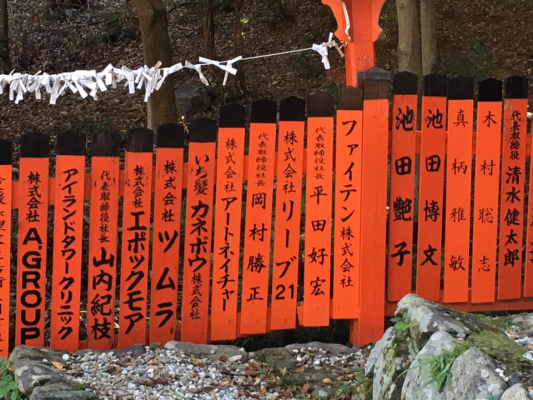 株式会社 A.GROUP
アイランドタワークリニック
代表取締役社長 山内紀枝
株式会社 エポックモア
株式会社 ツムラ
いち髪 カネボウ 株式会社
株式会社 アートネイチャー
代表取締役社長 岡村勝正
株式会社 リーブ21
代表取締役社長 平田好宏
ファイテン 株式会社
池田艶子
池田博文
真柄雅敏
木村聡志
代表取締役 清水健太郎